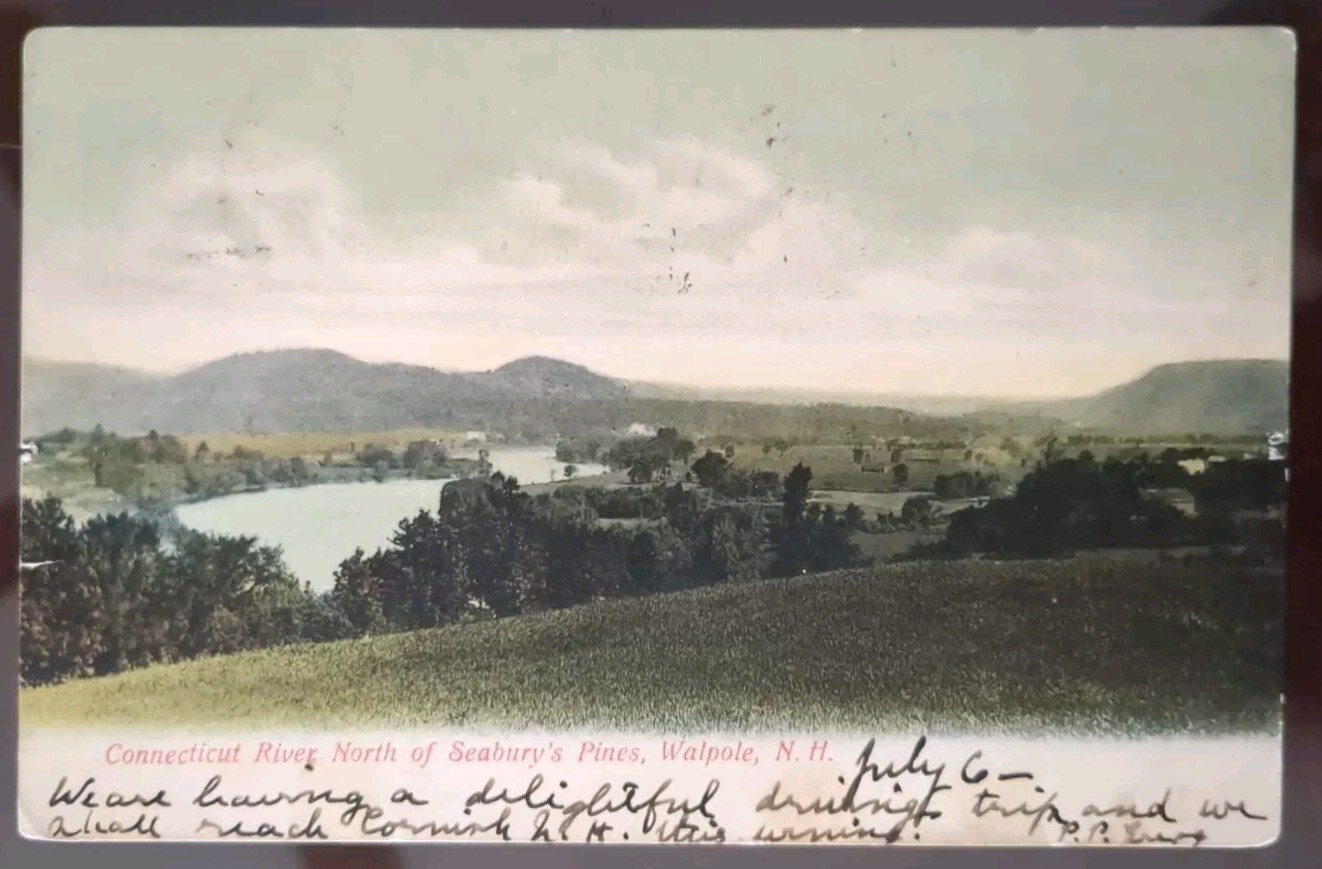 Connecticut River, North of Seabury's Pines, Walpole, N. H.
July 6 —
We are having a delightful driving trip and we
shall reach Cornish N. H. this
P. P.